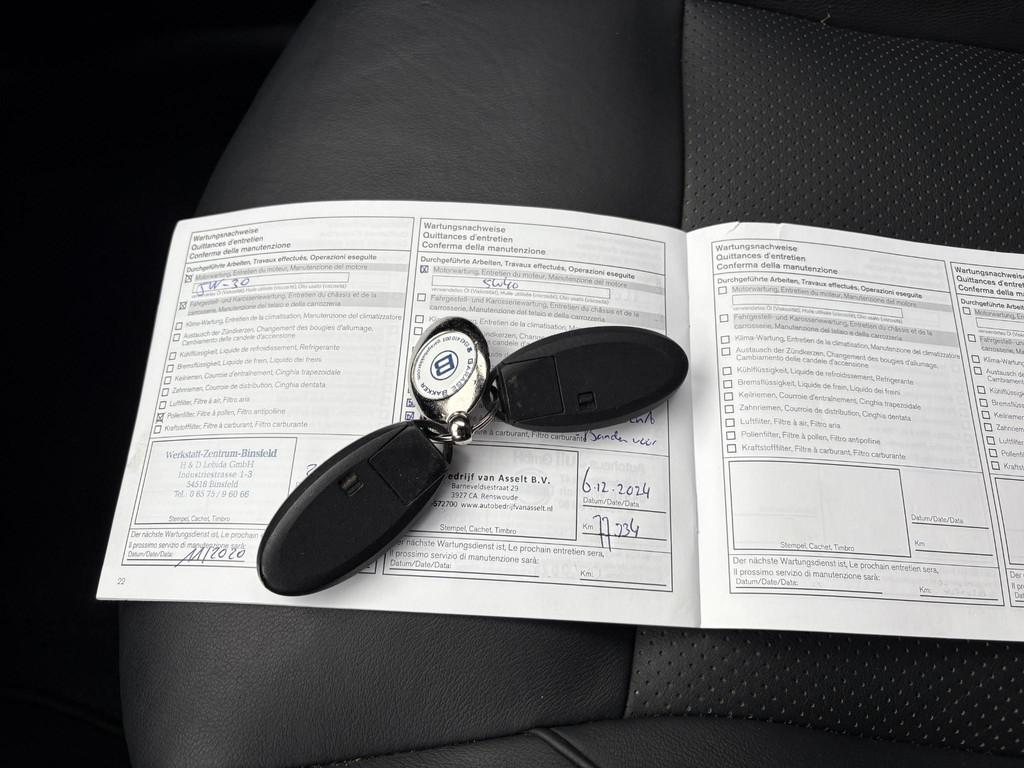 Wartungsnachweise
Quittances d'entretien
Conferma della manutenzione
Durchgeführte Arbeiten, Travaux effectués, Operazioni eseguite
Motorwartung, Entretien du moteur, Manutenzione del motore
5W-30
verwendetes Öl (Viskosität), Huile utilisée (viscosité), Olio usato (viscosità)
Fahrgestell- und Karosseriewartung, Entretien du châssis et de la
carrosserie, Manutenzione del telaio e della carrozzeria
Klima-Wartung, Entretien de la climatisation, Manutenzione del climatizzatore
Austausch der Zündkerzen, Changement des bougies d'allumage,
Cambiamento delle candele d'accensione
Kühlflüssigkeit, Liquide de refroidissement, Refrigerante
Bremsflüssigkeit, Liquide de frein, Liquido dei freni
Keilriemen, Courroie d'entraînement, Cinghia trapezoidale
Zahnriemen, Courroie de distribution, Cinghia dentata
Luftfilter, Filtre à air, Filtro aria
Pollenfilter, Filtre à pollen, Filtro antipolline
Kraftstofffilter, Filtre à carburant, Filtro carburante
Werkstatt-Zentrum-Binsfeld
H & D Lebida GmbH
Industriestrasse 1-3
54518 Binsfeld
Tel. 0 65 75 / 9 60 66
Stempel, Cachet, Timbro
Der nächste Wartungsdienst ist, Le prochain
Il prossimo servizio di manutenzione sarà:
Datum/Date/Data:
11/2020
22
Wartungsnachweise
Quittances d'entretien
Conferma della manutenzione
Durchgeführte Arbeiten, Travaux effectués, Operazioni eseguite
Motorwartung, Entretien du moteur, Manutenzione del motore
5W40
verwendetes Öl (Viskosität), Huile utilisée (viscosité), Olio usato (viscosità)
Fahrgestell- und Karosseriewartung, Entretien du châssis et de la
carrosserie, Manutenzione del telaio e della carrozzeria
Entretien de la climatisation,
GARAGE BAKKER
B
Filtre à carburant, Filtro carburante
Banden voor
edrijf van Asselt B.V.
Barneveldsestraat 29
3927 CA Renswoude
572700 www.autobedrijfvanasselt.nl
6.12.2024
Datum/Date/Data
Km
77.734
Stempel, Cachet, Timbro
Der nächste Wartungsdienst ist, Le prochain entretien sera,
Il prossimo servizio di manutenzione sarà:
Datum/Date/Data:
Km:
Wartungsnachweise
Quittances d'entretien
Conferma della manutenzione
Durchgeführte Arbeiten, Travaux effectués, Operazioni eseguite
Motorwartung, Entretien du moteur, Manutenzione del motore
verwendetes Öl (Viskosität), Huile utilisée (viscosité), Olio usato (viscosità)
Fahrgestell- und Karosseriewartung, Entretien du châssis et de la
carrosserie, Manutenzione del telaio e della carrozzeria
Klima-Wartung, Entretien de la climatisation, Manutenzione del climatizzatore
Austausch der Zündkerzen, Changement des bougies d'allumage,
Cambiamento delle candele d'accensione
Kühlflüssigkeit, Liquide de refroidissement, Refrigerante
Bremsflüssigkeit, Liquide de frein, Liquido dei freni
Keilriemen, Courroie d'entraînement, Cinghia trapezoidale
Zahnriemen, Courroie de distribution, Cinghia dentata
Luftfilter, Filtre à air, Filtro aria
Pollenfilter, Filtre à pollen, Filtro antipolline
Kraftstofffilter, Filtre à carburant, Filtro carburante
Datum/Date/Data
Km
Stempel, Cachet, Timbro
Der nächste Wartungsdienst ist, Le prochain entretien sera,
Il prossimo servizio di manutenzione sarà:
Datum/Date/Data:
Km:
Wartungsnachweise
Quittances d'entretien
Conferma della
Durchgeführte Arbeiten
Motorwartung,
verwendetes Öl
Fahrgestell-
carrosserie,
Klima-Wartung
Austausch der
Cambiamento
Kühlflüssigkeit
Keilriemen,
Zahnriemen
Luftfilter
Pollenfilter
Der nächste
Il prossimo
Datum/Date